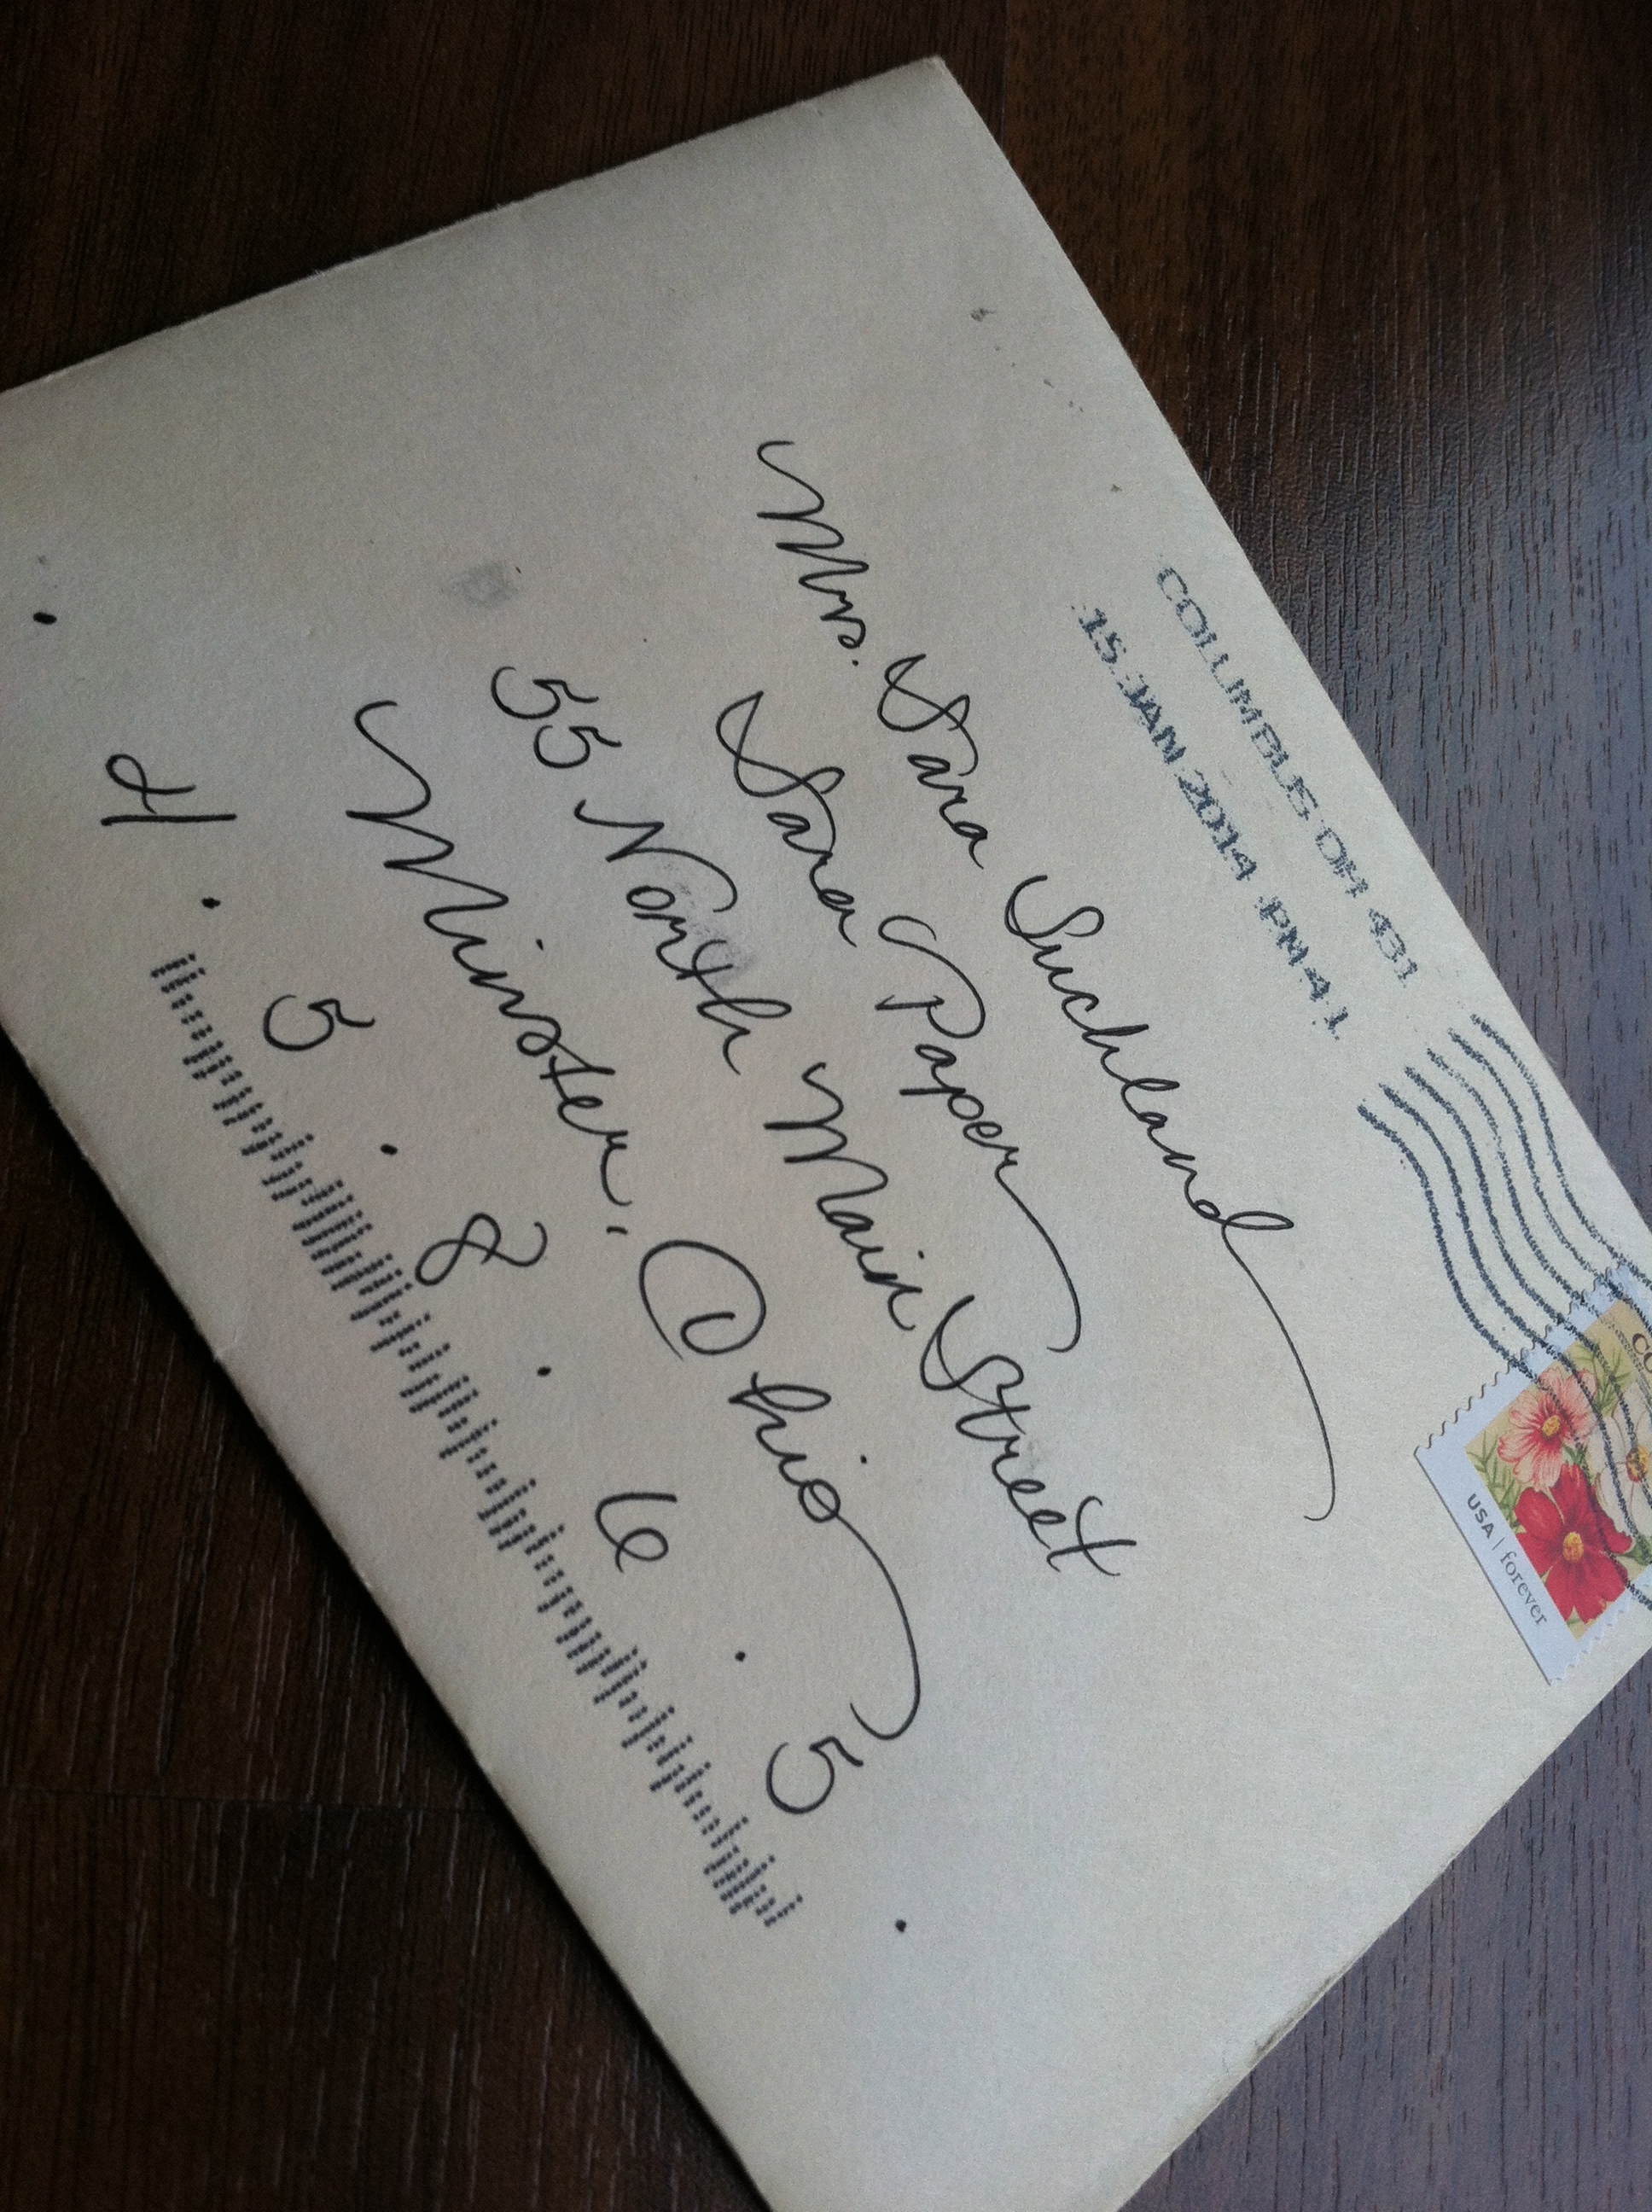 COLUMBUS OH 431
15 JAN 2014 PM 4 L
USA | forever
Mrs. Sara Suchland
Sara Paper
55 North Main Street
Minster, Ohio
· 4 · 5 · 8 · 6 · 5 ·